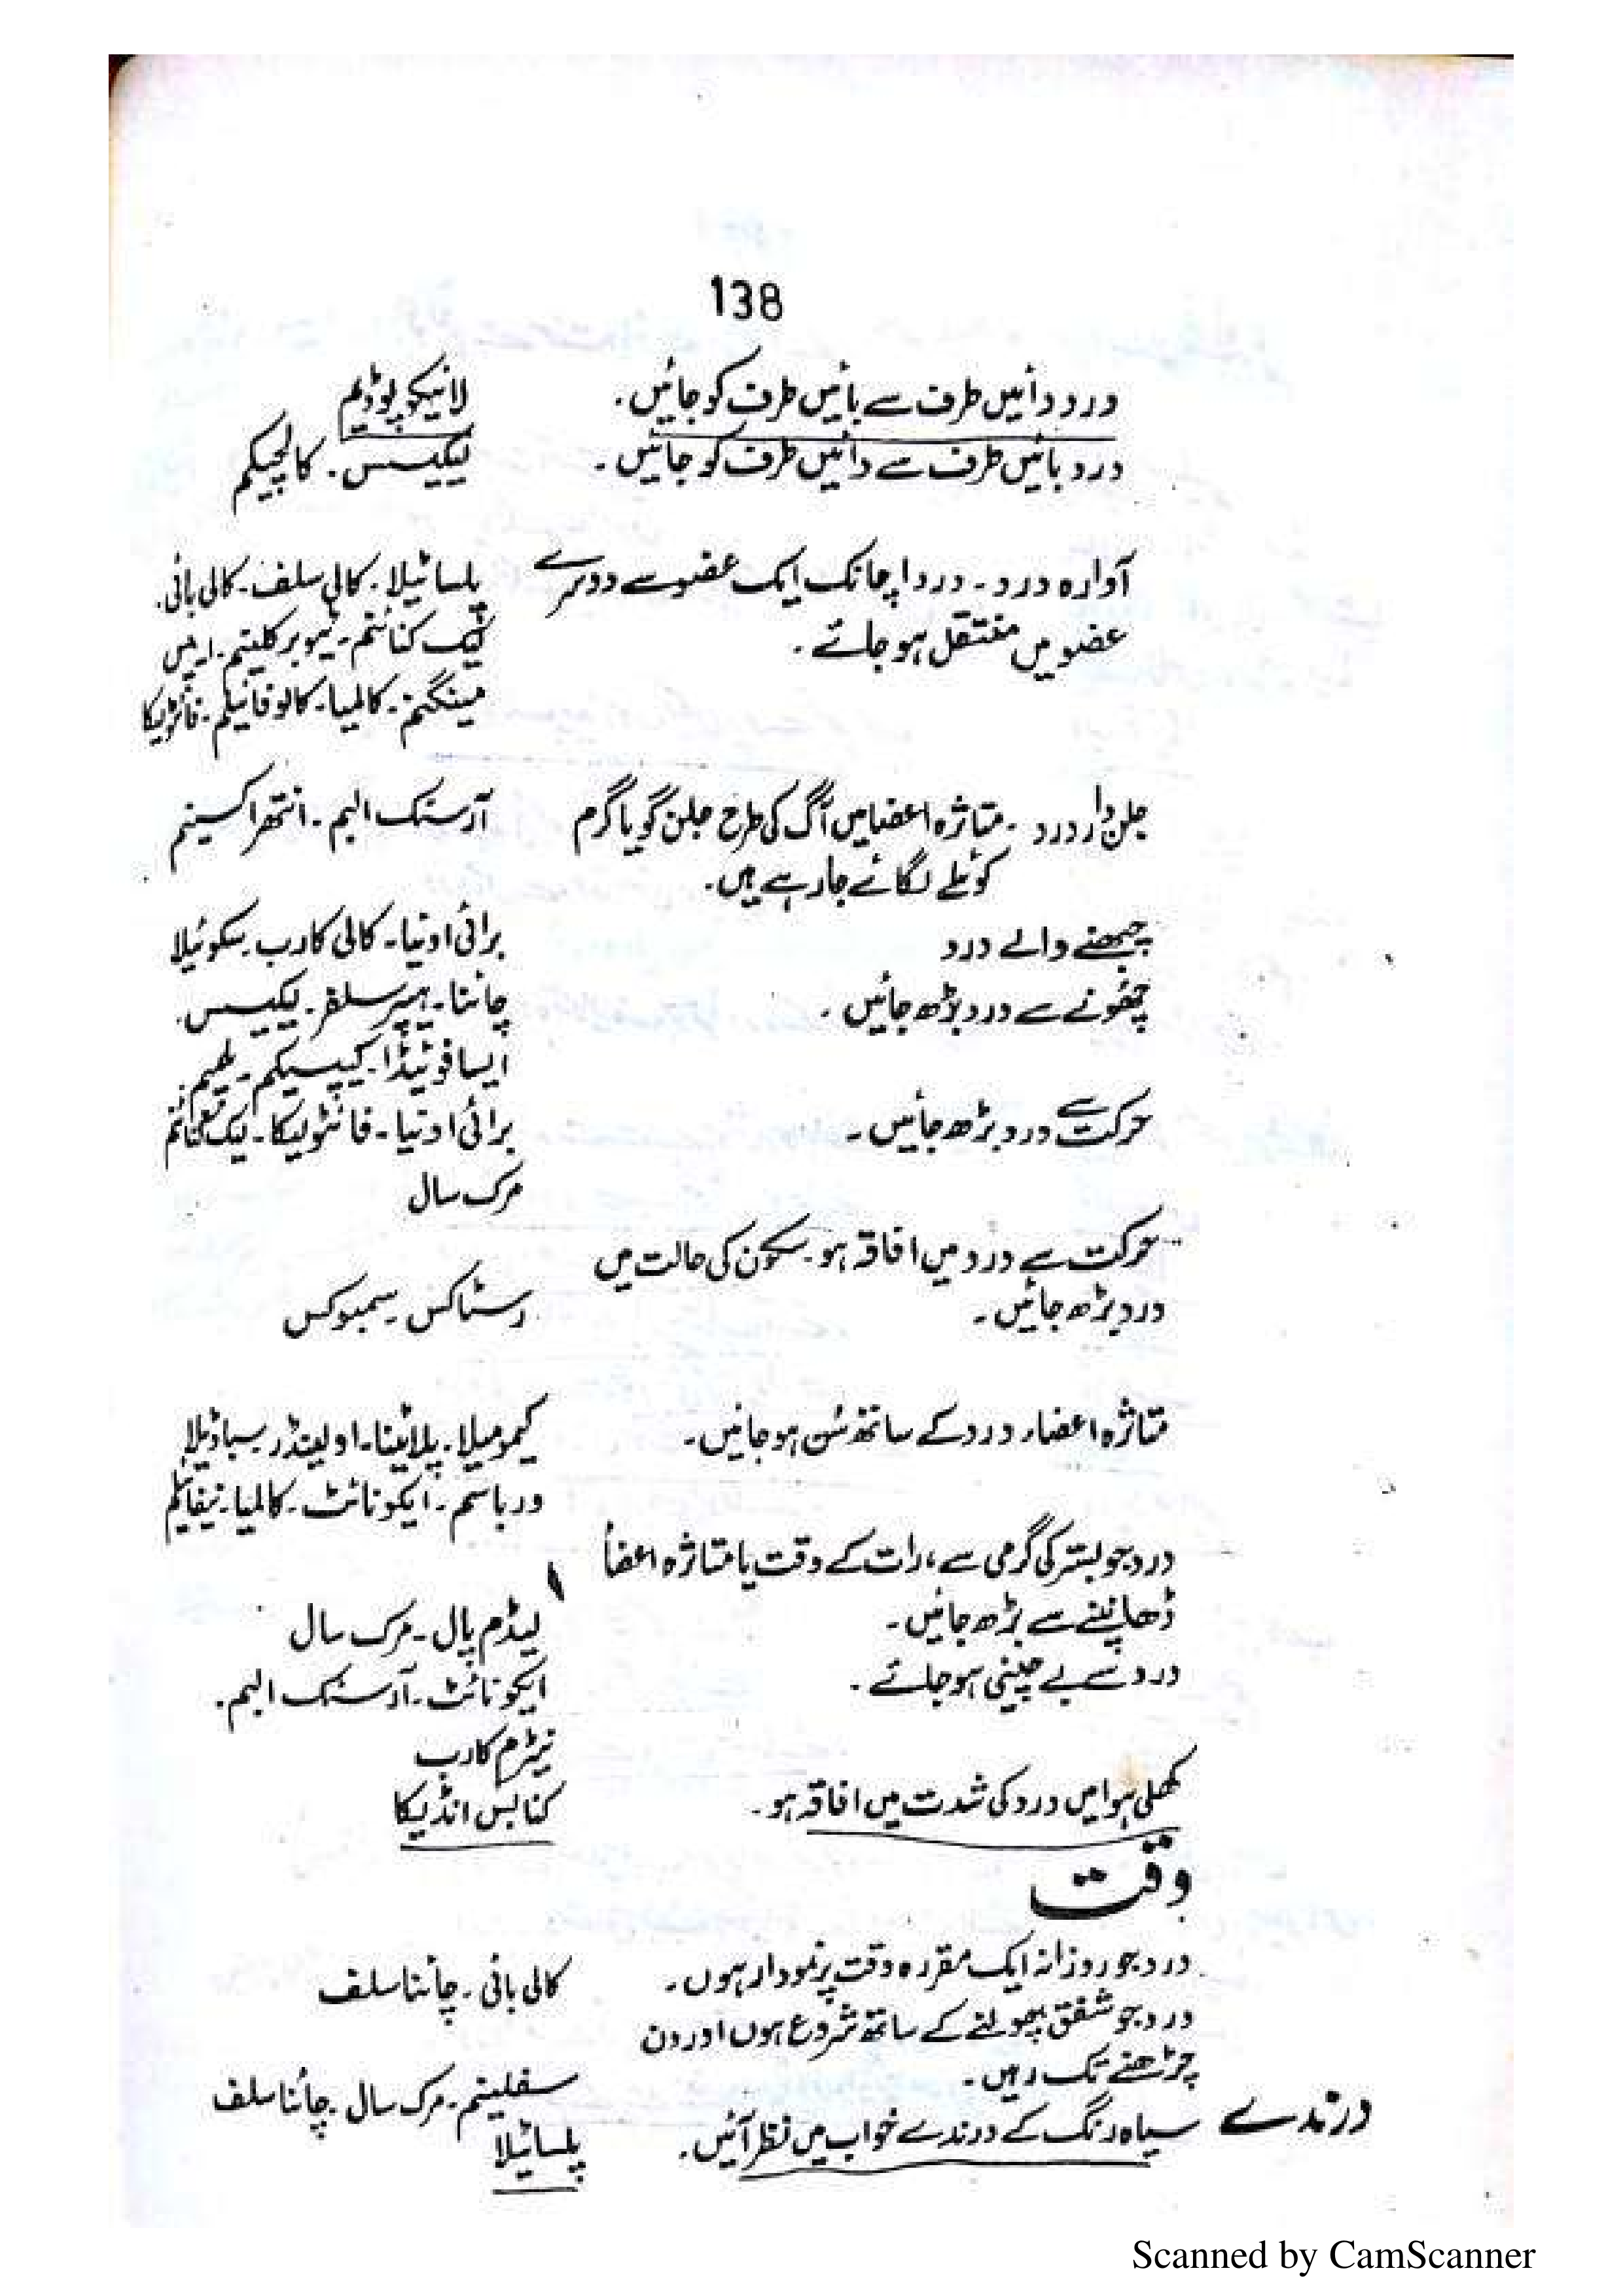 138
درد دائیں طرف سے بائیں طرف کو جائیں۔ لائیکوپوڈیم
درد بائیں طرف سے دائیں طرف کو جائیں۔ لیکیسس۔ کالچیکم
آوارہ درد۔ درد اچانک ایک عضو سے دوسرے پلساٹیلا۔ کالی سلف۔ کالی بائی۔
عضو میں منتقل ہو جائے۔ لیک کنائنم۔ ٹیوبرکلینم۔ ایپس
مینگنم۔ کالمیا۔ کالوفائیلم۔ فائٹولیکا
جلن دار درد۔ متاثرہ اعضا میں آگ کی طرح جلن گویا گرم آرسنک البم۔ انتھراکسینم
کوئلے لگائے جا رہے ہیں۔
چبھنے والے درد برائی اونیا۔ کالی کارب۔ سکوئیلا
چھونے سے درد بڑھ جائیں۔ چائنا۔ ہیپر سلفر۔ لیکیسس۔
ایسافوٹیڈا۔ کیپسیکم۔
حرکت سے درد بڑھ جائیں۔ برائی اونیا۔ فائٹولیکا۔ لیک کنائنم
مرک سال
حرکت سے درد میں افاقہ ہو۔ سکون کی حالت میں
درد بڑھ جائیں۔ رسٹاکس۔ سمبوکس
متاثرہ اعضاء درد کے ساتھ سُن ہو جائیں۔ کیمومیلا۔ پلاٹینا۔ اولینڈر۔ سباڈیلا
ورباسم۔ ایکونائٹ۔ کالمیا۔ نیفائیلم
درد جو بستر کی گرمی سے، رات کے وقت یا متاثرہ اعضأ
ڈھانپنے سے بڑھ جائیں۔ لیڈم پال۔ مرک سال
درد سے بے چینی ہو جائے۔ ایکونائٹ۔ آرسنک البم۔
نیٹرم کارب
کھلی ہوا میں درد کی شدت میں افاقہ ہو۔ کنابس انڈیکا
وقت
درد جو روزانہ ایک مقررہ وقت پر نمودار ہوں۔ کالی بائی۔ چائنا سلف
درد جو شفق پھولنے کے ساتھ شروع ہوں اور دن
چڑھنے تک رہیں۔ سفلینم۔ مرک سال۔ چائنا سلف
درندے سیاہ رنگ کے درندے خواب میں نظر آئیں۔ پلساٹیلا
Scanned by CamScanner